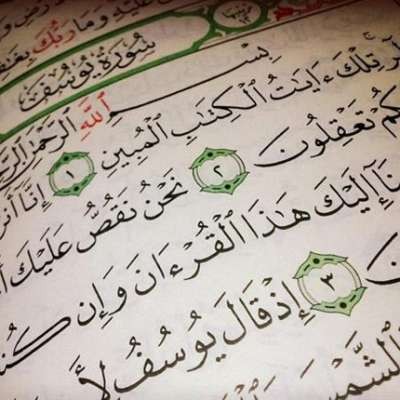 عَلَيْهِ وَمَا رَبُّكَ بِغَـ
سُورَةُ يُوسُفَ
بِسْـ ٱللَّهِ ٱلرَّحْمَٰنِ ٱلرَّ
ـر تِلْكَ ءَايَٰتُ ٱلْكِتَٰبِ ٱلْمُبِينِ ١ إِنَّآ أَنز
ـكُمْ تَعْقِلُونَ ٢ نَحْنُ نَقُصُّ عَلَيْكَ أَ
ـنَآ إِلَيْكَ هَٰذَا ٱلْقُرْءَانَ وَإِن كُنـ
ـنَ ٣ إِذْ قَالَ يُوسُفُ لِأَ
ٱلشَّمْسَ